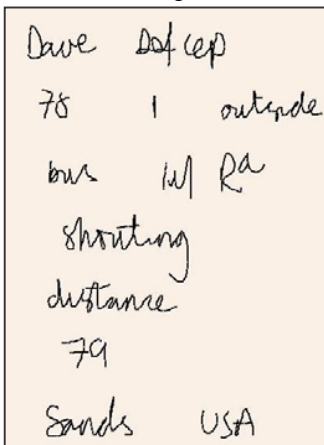 Dave
78 1 outside
bus w/ Ra
shouting
distance
79
Sands USA